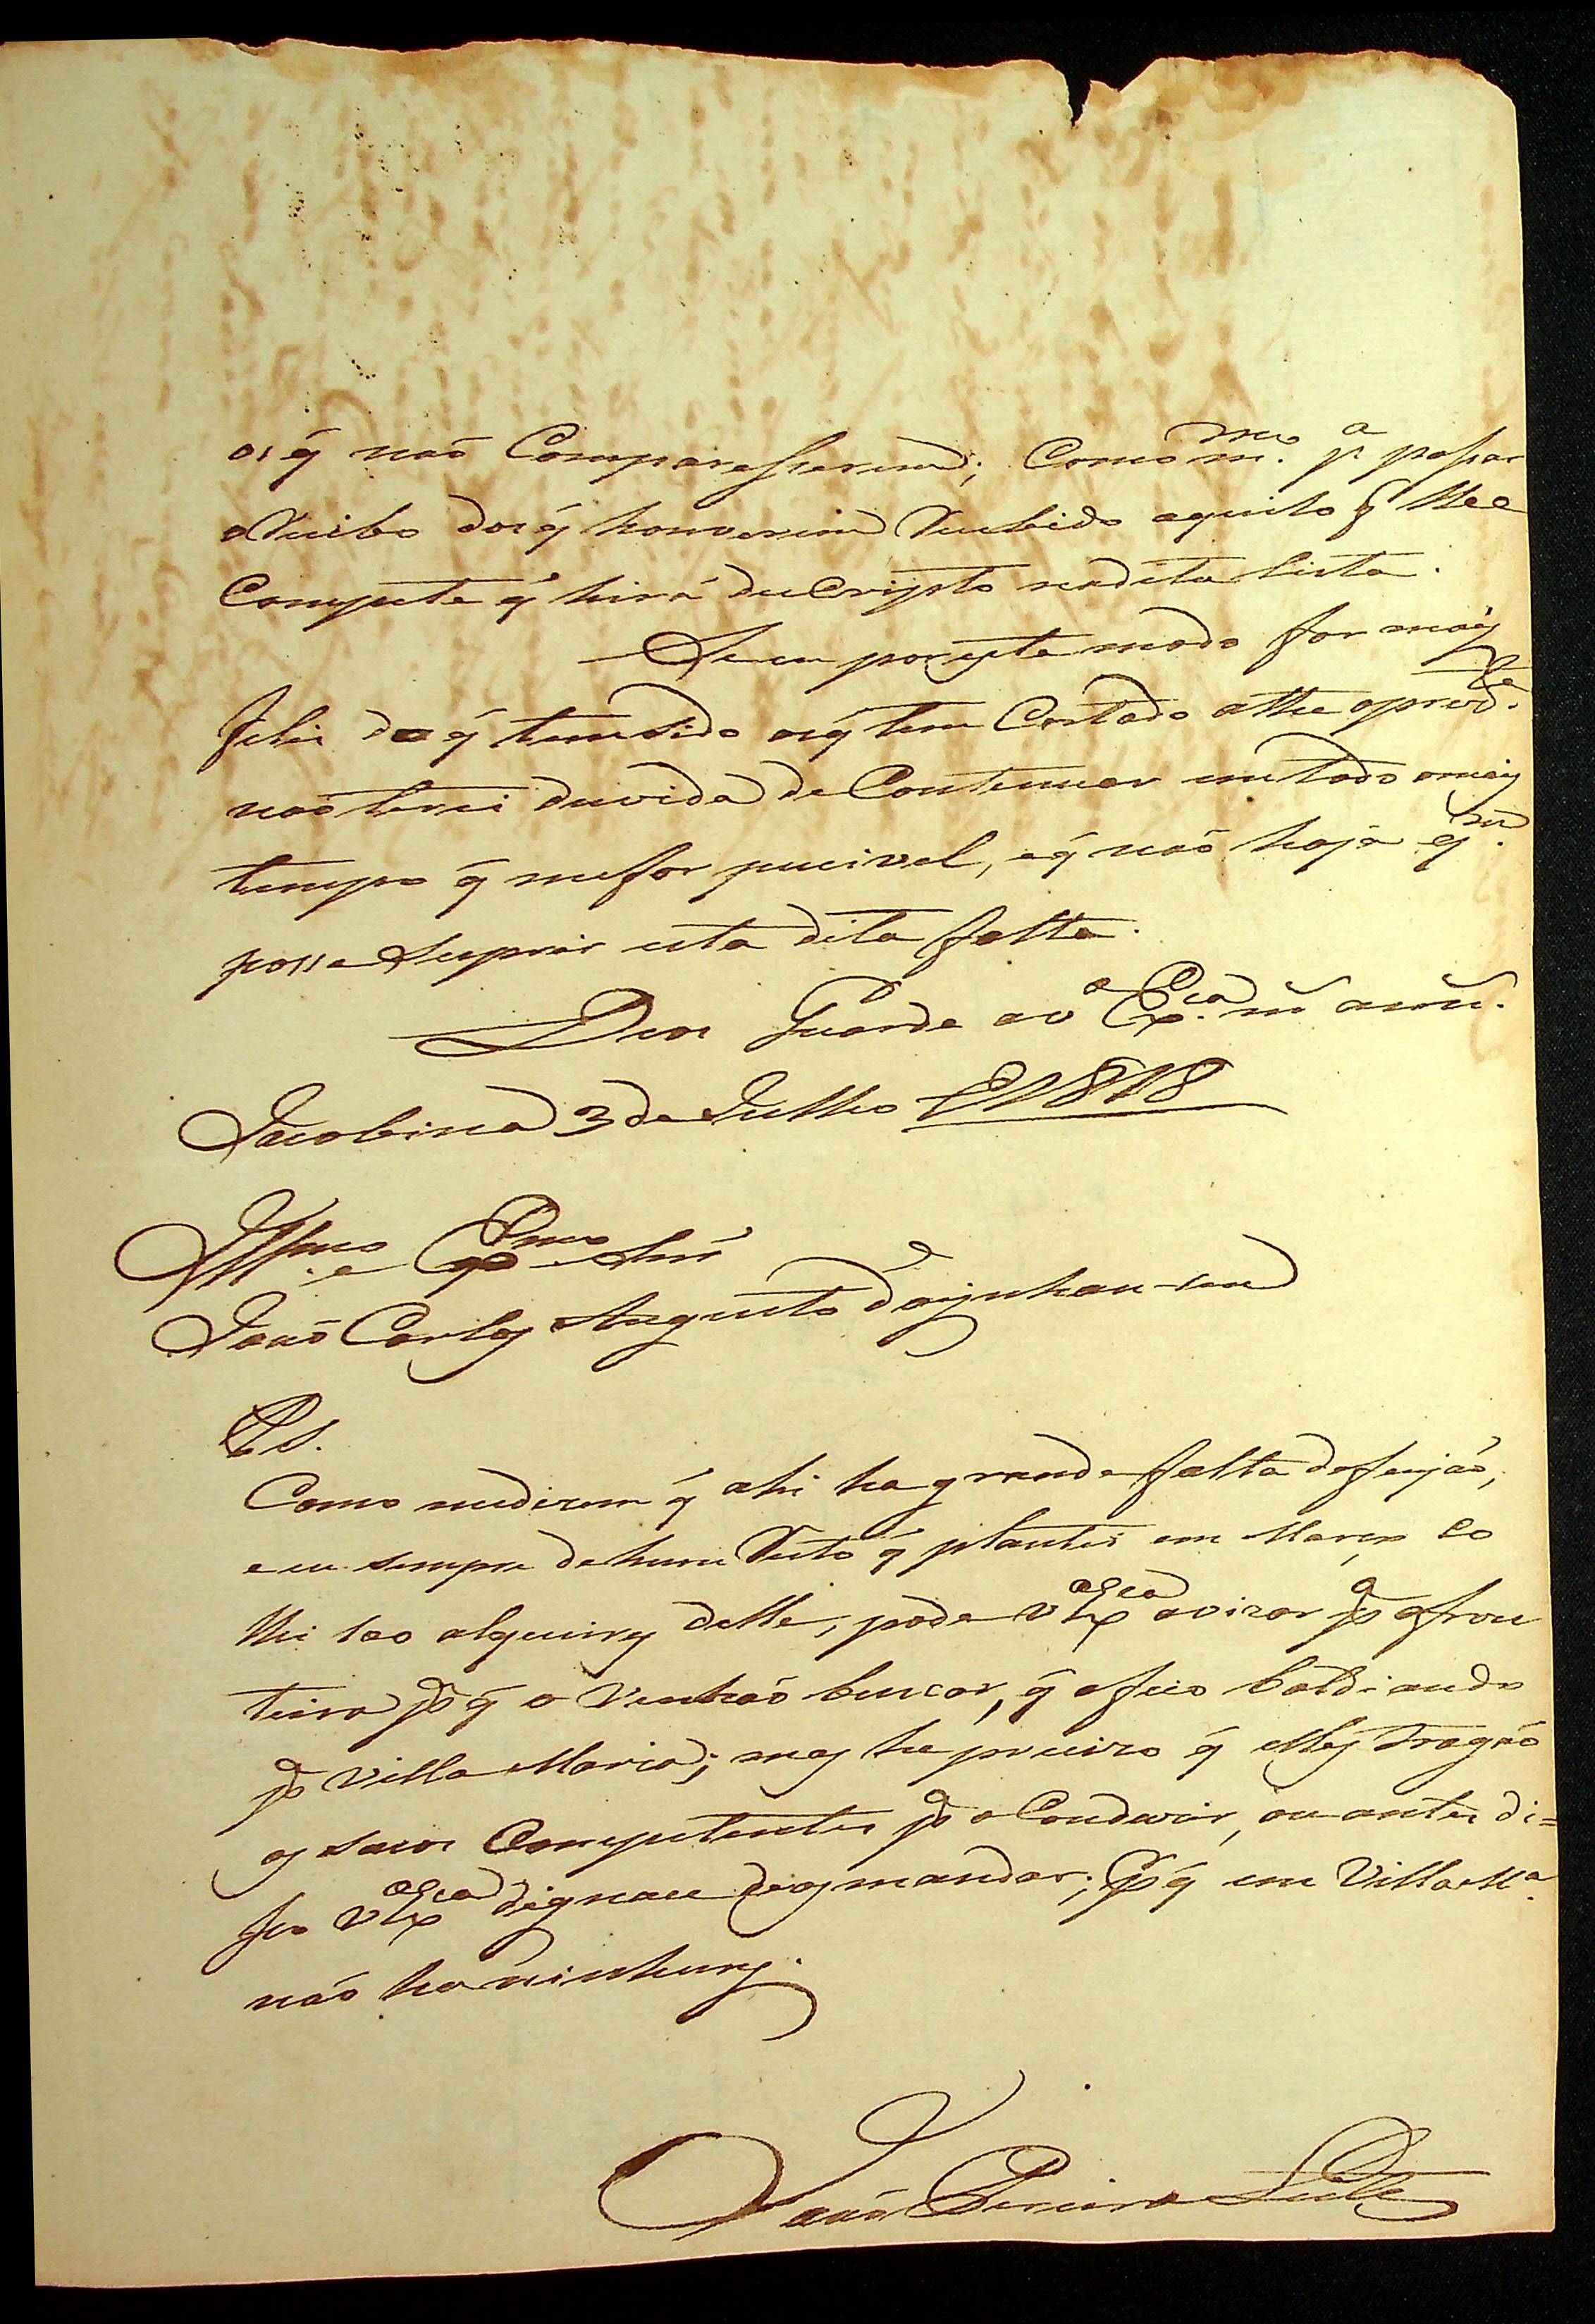 os q̃ naõ Comparesserem; Como m.mo p.a passar
o Recibo dos q̃ houverem Recebido aquilo q̃ lhe
Compete q̃ hirá descripto na dita lista.
Se eu por este modo for mais
felis do q̃ tem sido os q̃ tem Cortado athe o prez.te
naõ terei duvida de Contenuar em todo o mais
tempo q̃ me for pucivel, e q̃ naõ haja q.m
possa Suprir esta dita falta.
Deos Guarde a V.a Ex.cia m.s ann.s
Jacobina 3 de Julho de 1818
Ill.mo e Ex.mo Snr
Joaõ Carlos Augusto d'oijnhausem
P. S.
Como me dizem q̃ ahi ha grande falta de feijaõ,
e eu sempre de hum Resto q̃ plantei em Março Co
lhi sao alquires delle, pode V.a Ex.cia avizar p.a a fron
teira p.a q̃ o Venhaõ buscar, q̃ o fico baldiando
p.a Villa Maria; mas he precizo q̃ elles tragaõ
os sacos Competentes p.a o Conduzir, ou antes di=
go V.a Ex.cia dignase de os mandar; p.r q̃ em Villa M.a
não ha ninhuns.
Joaõ Pereira Leite